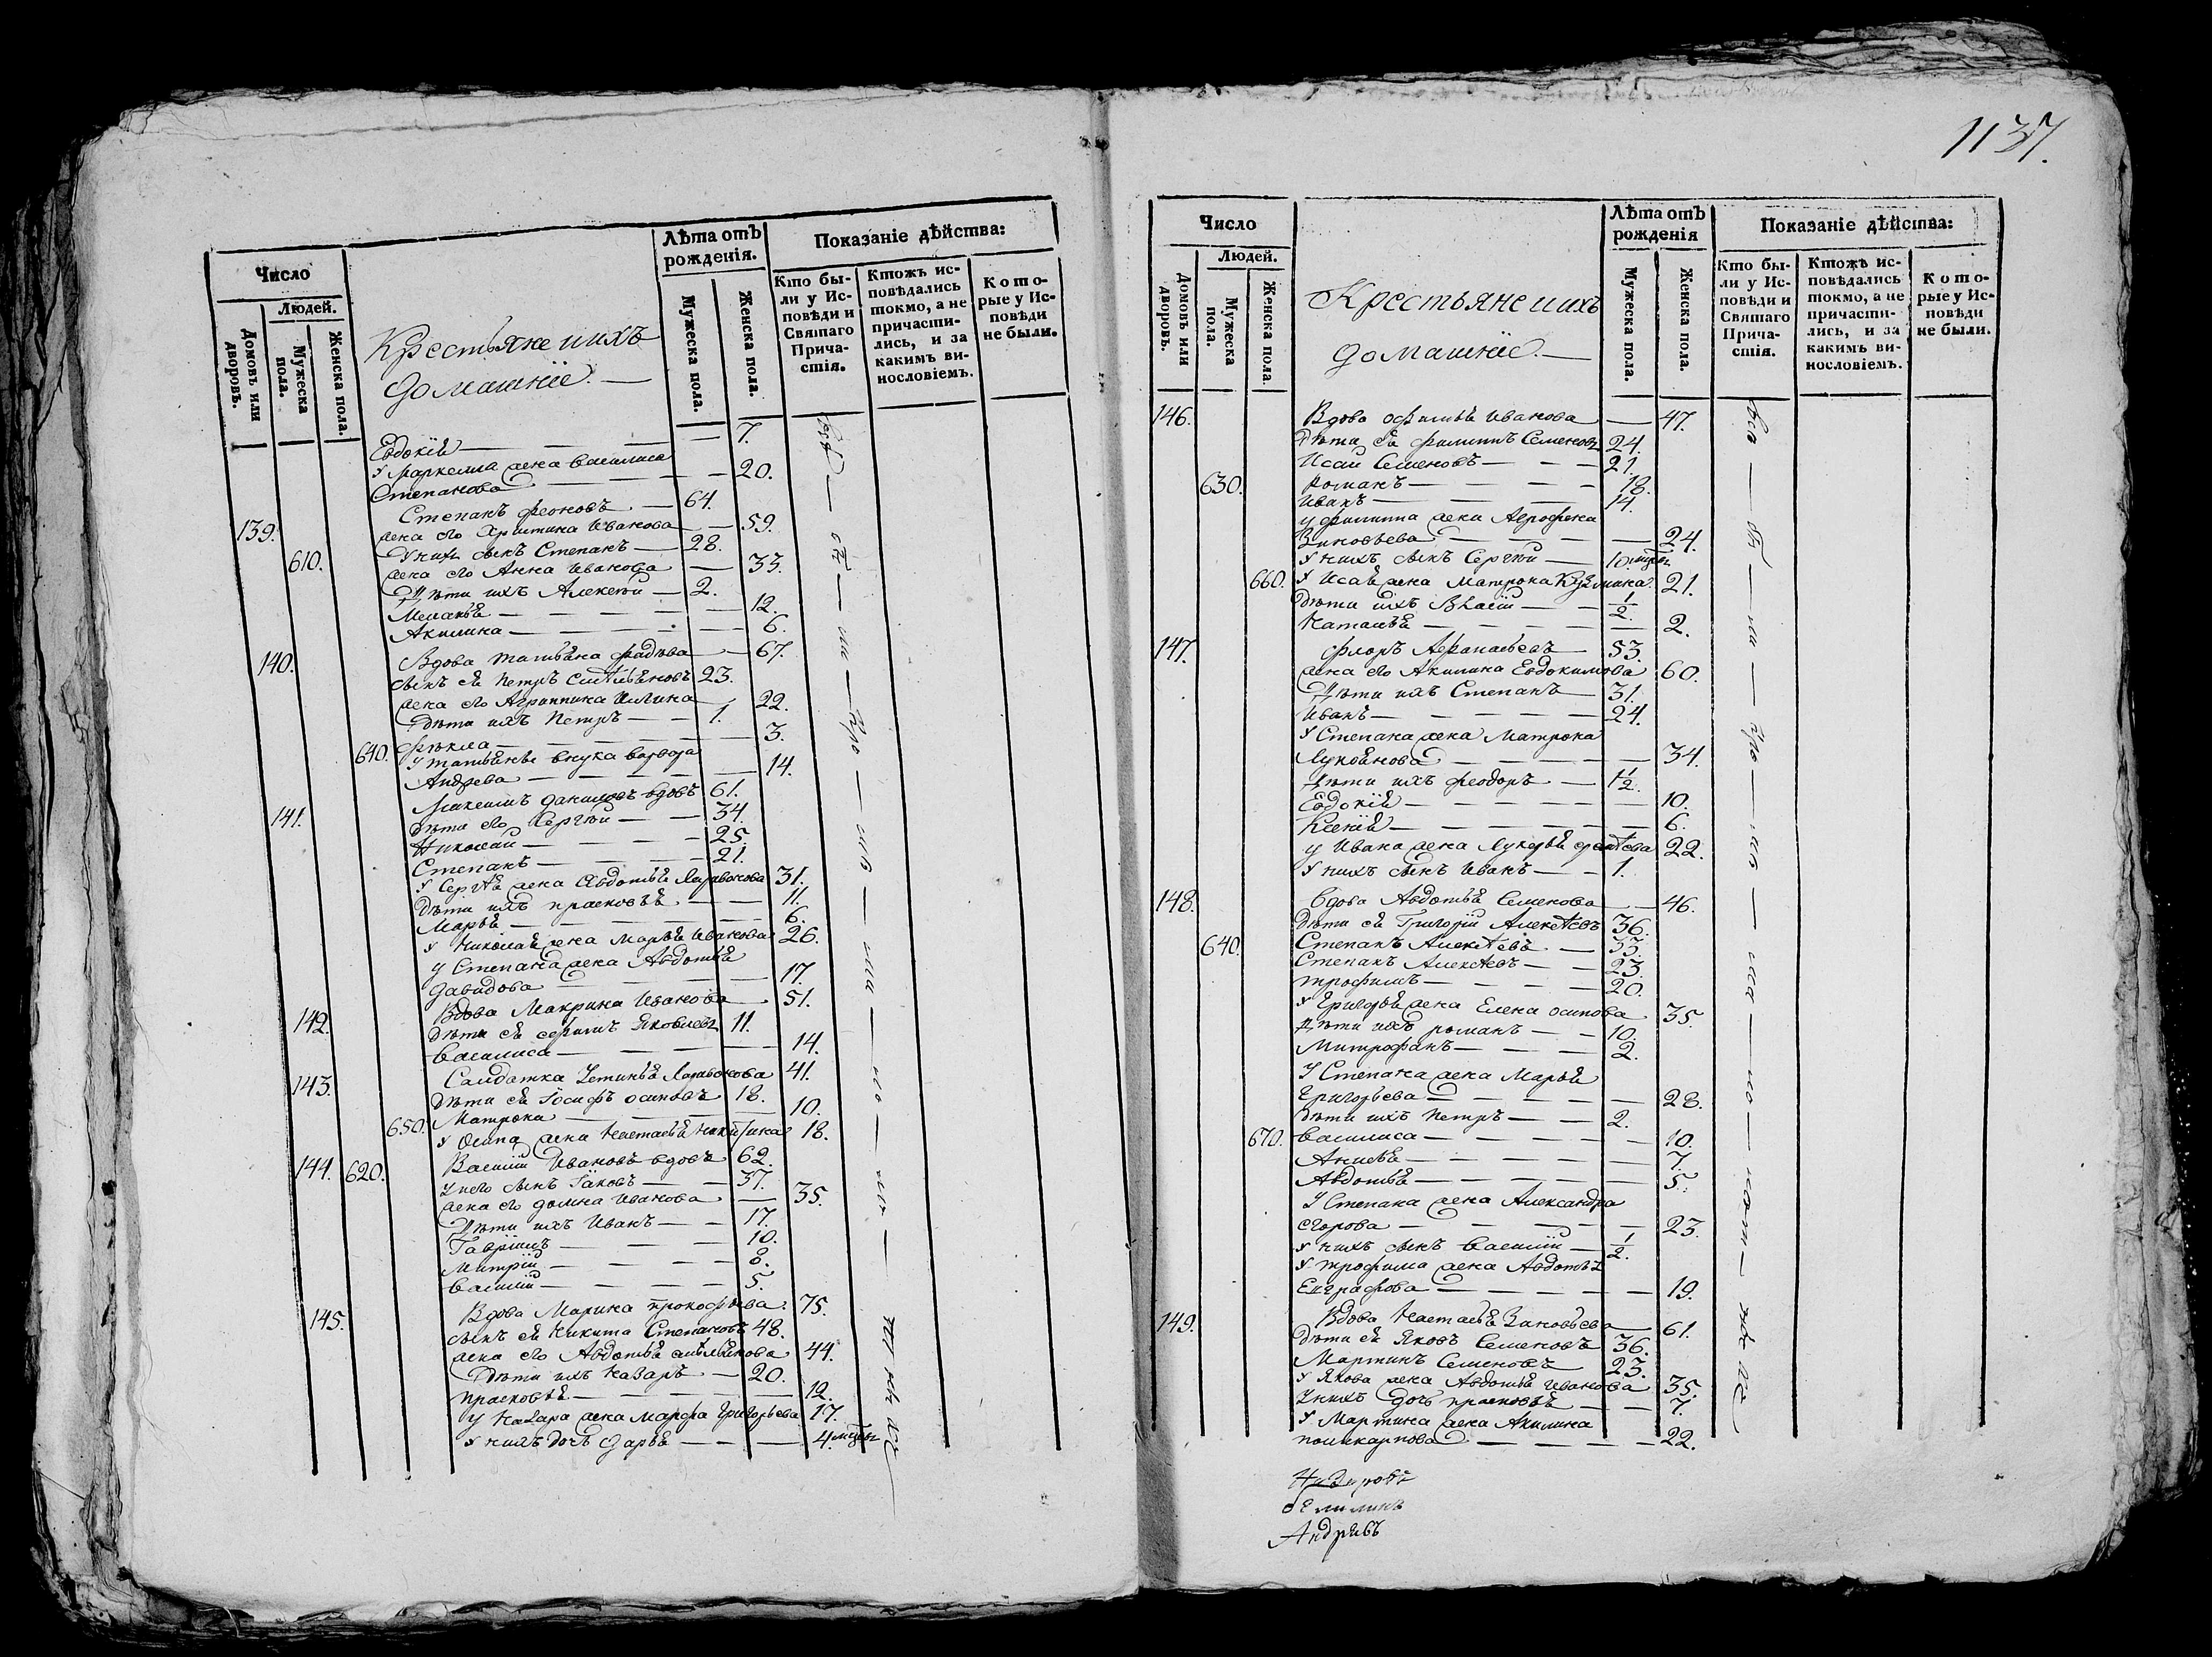 Число
Людей.
Домовъ или дворовъ.
Мужеска пола.
Женска пола.
Крестьяне и ихъ
домашніе.
Лѣта отъ рожденія.
Мужеска пола.
Женска пола.
Показаніе дѣйства:
Кто были у Исповѣди и Святаго Причастія.
Ктожъ исповѣдались токмо, а не причастились, и за какимъ винословіемъ.
Которые у Исповѣди не были.
Евдокія — 7.
У Маркелла жена Василиса
Степанова — 20.
139. Степанъ Феоновъ — 64.
жена его Христина Иванова — 59.
610. У нихъ сынъ Степанъ — 28.
жена его Анна Иванова — 33.
Дѣти ихъ Алексѣй — 2.
Меланья — 12.
Акилина — 6.
140. Вдова Татьяна Фадѣева — 67.
сынъ ея Петръ Емельяновъ 23.
жена его Агриппина Ильина 22.
Дѣти ихъ Петръ — 1.
640. Фекла — 3.
У Татьяны внука Варвара
Андрева — 14.
141. Михаилъ Даниловъ вдовъ 61.
Дѣти его Сергѣй — 34.
Николай — 25.
Степанъ — 21.
У Сергѣя жена Авдотья 31.
Дѣти ихъ Прасковья — 11.
Марья — 6.
У Николая жена Марья Иванова 26.
У Степана жена Авдотья
Давидова — 17.
142. Вдова Макрина Иванова 51.
Дѣти ея Ефимъ Яковлевъ 11.
Василиса — 14.
143. Салдатка Устинья 41.
Дѣти ея Іосифъ Осиповъ 18.
650. Матрона — 10.
У Осипа жена Настасья Никитина 18.
144. 620. Василій Ивановъ вдовъ 62.
У него сынъ Іаковъ — 37.
жена его Домна Иванова — 35.
Дѣти ихъ Иванъ — 17.
Гавріилъ — 10.
Митрій — 8.
Василій — 5.
145. Вдова Марина Прокофьева 75.
сынъ ея Никита Степановъ 48.
жена его Авдотья Емельянова 44.
Дѣти ихъ Назаръ — 20.
Прасковья — 12.
У Назара жена Марфа Григорьева 17.
У нихъ дочь Дарья — 4. мѣсяц
1137.
Число
Людей.
Домовъ или дворовъ.
Мужеска пола.
Женска пола.
Крестьяне и ихъ
домашніе.
Лѣта отъ рожденія
Мужеска пола.
Женска пола.
Показаніе дѣйства:
Кто были у Исповѣди и Святаго Причастія.
Ктожъ исповѣдались токмо, а не причастились, и за какимъ винословіемъ.
Которые у Исповѣди не были.
146. Вдова Офимья Иванова — 47.
Дѣти ея Филиппъ Семеновъ 24.
Исай Семеновъ — 21.
630. Романъ — 18.
Иванъ — 14.
У Филиппа жена Агрофена
Зиновьева — 24.
У нихъ сынъ Сергѣй — 10. мѣсяц
660. У Исая жена Матрона Кузмина 21.
Дѣти ихъ Власій — 1/2.
Наталья — 2.
147. Флоръ Афанасьевъ — 53.
жена его Акилина Евдокимова 60.
Дѣти ихъ Степанъ — 31.
Иванъ — 24.
У Степана жена Матрона
Лукьянова — 34.
Дѣти ихъ Феодоръ — 1 1/2.
Евдокія — 10.
Ксенія — 6.
У Ивана жена Лукерья 22.
У нихъ сынъ Иванъ — 1.
148. Вдова Авдотья Семенова — 46.
Дѣти ея Григорій Алексѣевъ 36.
640. Степанъ Алексѣевъ — 33.
Степанъ Алексѣевъ — 23.
Трофимъ — 20.
У Григорья жена Елена Осипова 35.
Дѣти ихъ Романъ — 10.
Митрофанъ — 2.
У Степана жена Марья
Григорьева — 28.
Дѣти ихъ Петръ — 2.
670. Василиса — 10.
Анисья — 7.
Авдотья — 5.
У Степана жена Александра
Егорова — 23.
У нихъ сынъ Василій — 1/2.
У Трофима жена Авдотья
Евграфова — 19.
149. Вдова Настасья Зиновьева 61.
Дѣти ея Яковъ Семеновъ 36.
Мартинъ Семеновъ 23.
У Якова жена Авдотья Иванова 35.
У нихъ дочь Прасковья — 7.
У Мартина жена Акилина
Поликарпова — 22.
Андрѣевъ